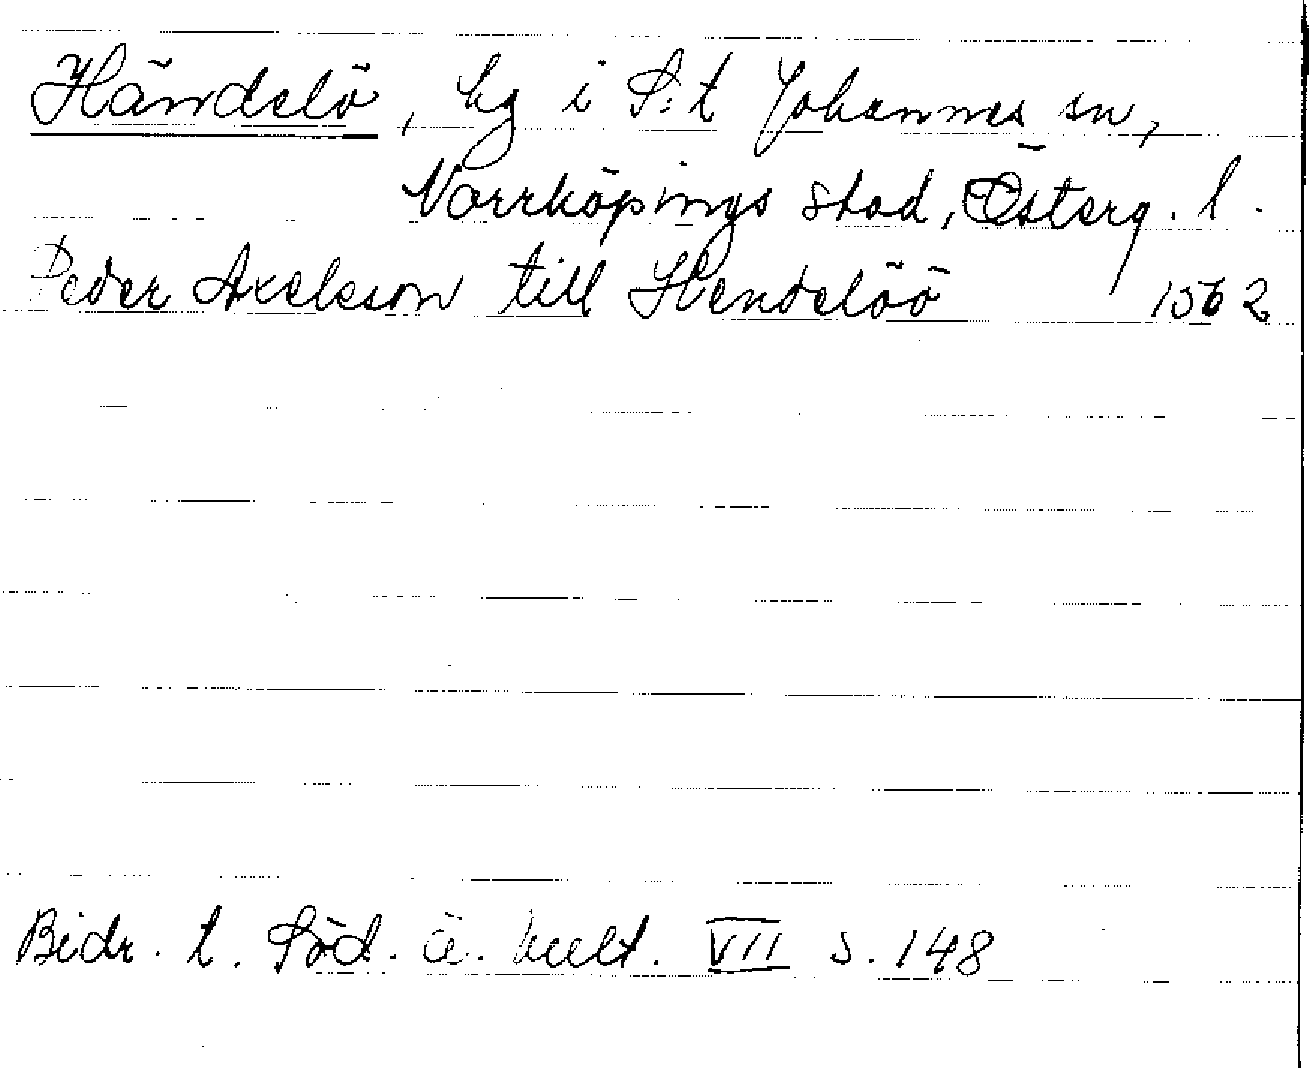 Händelö, hg i S:t Johannes sn,
Norrköpings stad, Österg. l.
Peder Axelsson till Hendelöö 1562
Bidr. t. Söd. ä. kult. VII s. 148